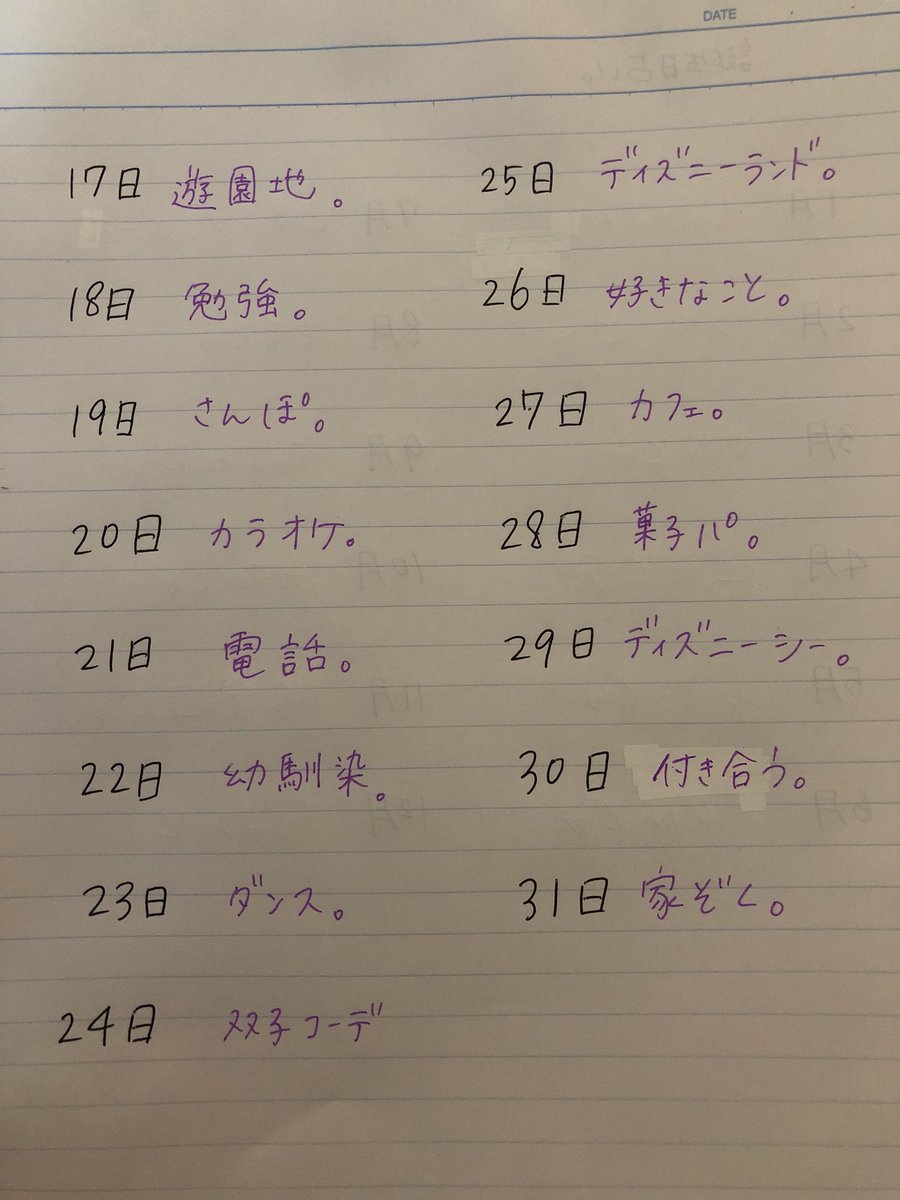 DATE
17日 遊園地。
18日 勉強。
19日 さんぽ。
20日 カラオケ。
21日 電話。
22日 幼馴染。
23日 ダンス。
24日 双子コーデ
25日 ディズニーランド。
26日 好きなこと。
27日 カフェ。
28日 菓子パ。
29日 ディズニーシー。
30日 付き合う。
31日 家ぞく。